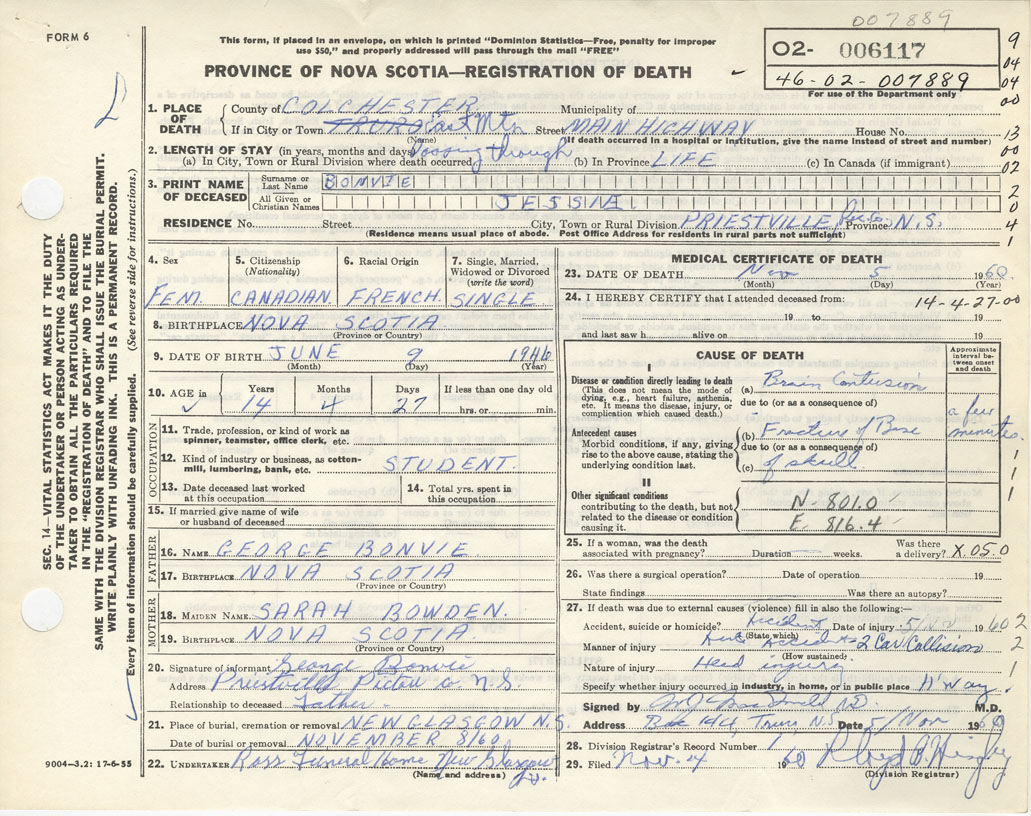 007889
FORM 6
This form, if placed in an envelope, on which is printed "Dominion Statistics—Free, penalty for improper
use $50," and properly addressed will pass through the mail "FREE"
PROVINCE OF NOVA SCOTIA—REGISTRATION OF DEATH
02- 006117
46-02-007889
For use of the Department only
9
04
04
00
13
00
02
2
0
4
1
SEC. 14—VITAL STATISTICS ACT MAKES IT THE DUTY
OF THE UNDERTAKER OR PERSON ACTING AS UNDER-
TAKER TO OBTAIN ALL THE PARTICULARS REQUIRED
IN THE "REGISTRATION OF DEATH" AND TO FILE THE
SAME WITH THE DIVISION REGISTRAR WHO SHALL ISSUE THE BURIAL PERMIT.
WRITE PLAINLY WITH UNFADING INK. THIS IS A PERMANENT RECORD.
Every item of information should be carefully supplied. (See reverse side for instructions.)
1. PLACE OF DEATH
County of COLCHESTER Municipality of
If in City or Town TRURO East Mtn Street MAIN HIGHWAY House No.
(Name) (If death occurred in a hospital or institution, give the name instead of street and number)
2. LENGTH OF STAY (in years, months and days) Passing through
(a) In City, Town or Rural Division where death occurred (b) In Province LIFE (c) In Canada (if immigrant)
3. PRINT NAME OF DECEASED
Surname or Last Name BONVIE
All Given or Christian Names JESSIA
RESIDENCE No. Street City, Town or Rural Division PRIESTVILLE Pic. Co. Province N.S.
(Residence means usual place of abode. Post Office Address for residents in rural parts not sufficient)
4. Sex
FEM.
5. Citizenship
(Nationality)
CANADIAN
6. Racial Origin
FRENCH
7. Single, Married,
Widowed or Divorced
(write the word)
SINGLE
8. BIRTHPLACE NOVA SCOTIA
(Province or Country)
9. DATE OF BIRTH JUNE 9 1946
(Month) (Day) (Year)
10. AGE in
Years Months Days If less than one day old
14 4 27 hrs. or min.
OCCUPATION
11. Trade, profession, or kind of work as
spinner, teamster, office clerk, etc.
12. Kind of industry or business, as cotton-
mill, lumbering, bank, etc. STUDENT.
13. Date deceased last worked
at this occupation
14. Total yrs. spent in
this occupation
15. If married give name of wife
or husband of deceased
FATHER
16. NAME GEORGE BONVIE
17. BIRTHPLACE NOVA SCOTIA
(Province or Country)
MOTHER
18. MAIDEN NAME SARAH BOWDEN.
19. BIRTHPLACE NOVA SCOTIA
(Province or Country)
20. Signature of informant George Bonvie
Address Priestville Pictou Co. N.S.
Relationship to deceased Father.
21. Place of burial, cremation or removal NEW GLASGOW N.S.
Date of burial or removal NOVEMBER 8/60
22. UNDERTAKER Ross Funeral Home New Glasgow
(Name and address) N.S.
9004—3.2: 17-6-55
MEDICAL CERTIFICATE OF DEATH
23. DATE OF DEATH Nov 5 1960
(Month) (Day) (Year)
24. I HEREBY CERTIFY that I attended deceased from: 14-4-27-00
19 to 19
and last saw h alive on 19
CAUSE OF DEATH
Approximate
interval be-
tween onset
and death
I
Disease or condition directly leading to death
(This does not mean the mode of
dying, e.g., heart failure, asthenia,
etc. It means the disease, injury, or
complication which caused death.)
(a) Brain Contusion
due to (or as a consequence of)
a few
minutes.
Antecedent causes
Morbid conditions, if any, giving
rise to the above cause, stating the
underlying condition last.
(b) Fracture of Base
due to (or as a consequence of)
(c) of skull
1
1
1
II
Other significant conditions
contributing to the death, but not
related to the disease or condition
causing it.
N-801.0
E. 816.4
25. If a woman, was the death
associated with pregnancy? Duration weeks.
Was there
a delivery? X 05.0
26. Was there a surgical operation? Date of operation 19
State findings Was there an autopsy?
27. If death was due to external causes (violence) fill in also the following:—
Accident, suicide or homicide? Accident Date of injury 5/Nov 1960 2
(State, which)
Manner of injury Auto Accident 2 Car Collision 2
(How sustained)
Nature of injury Head injury 1
Specify whether injury occurred in industry, in home, or in public place H'way. 1
Signed by MacDonald M.D.
Address Box 104, Truro, N.S. Date 5/Nov 1960
28. Division Registrar's Record Number 1
29. Filed Nov. 1960
(Division Registrar)